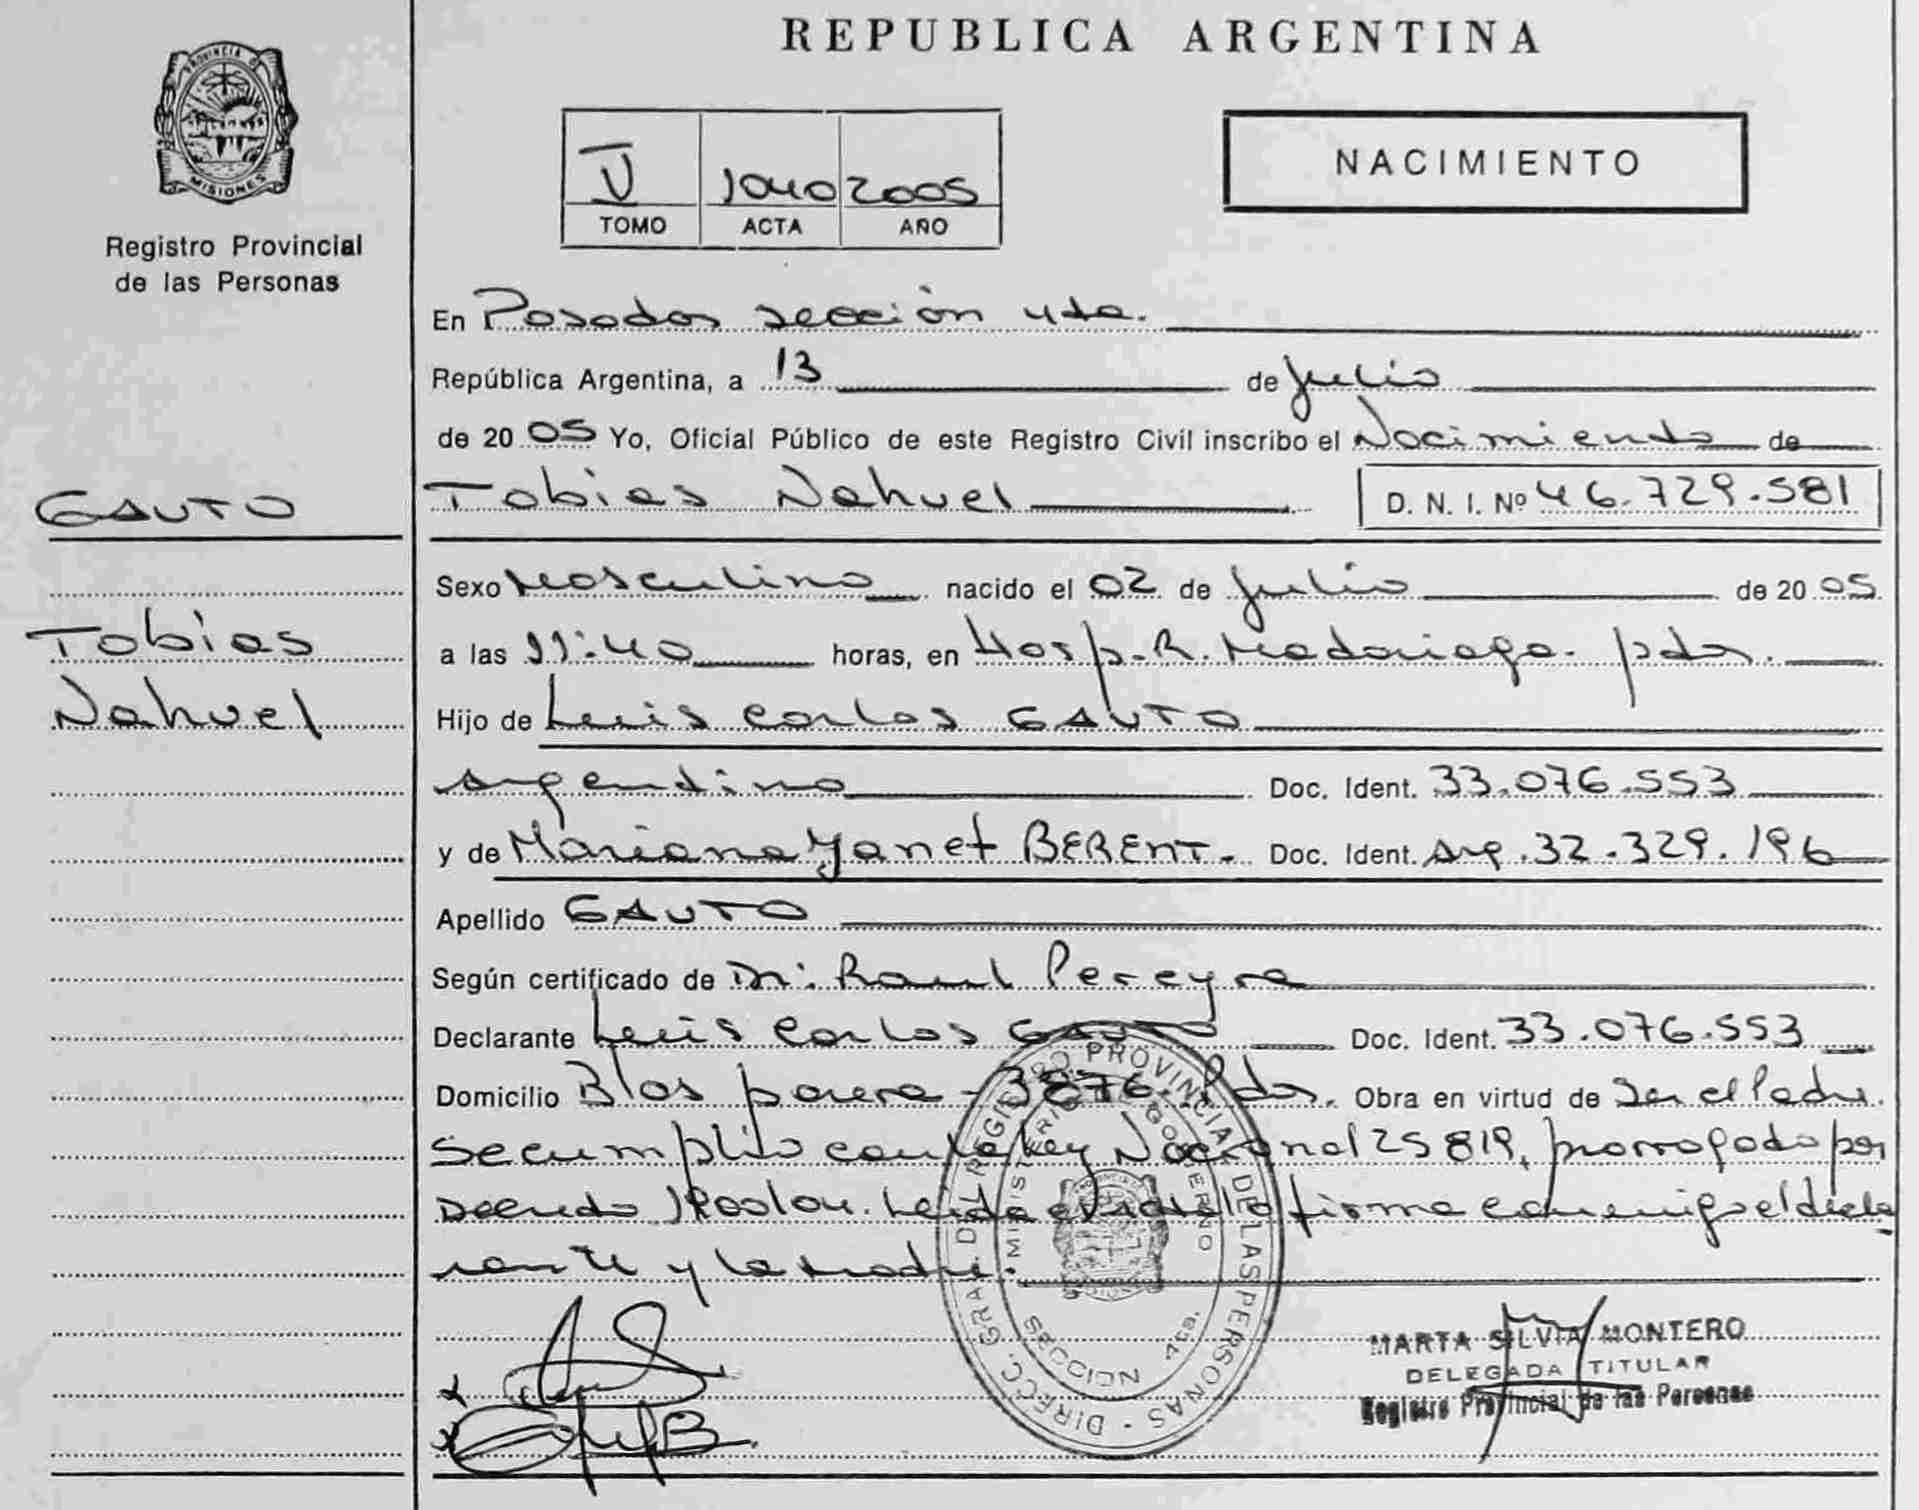 REPUBLICA ARGENTINA
PROVINCIA DE
MISIONES
Registro Provincial
de las Personas
V 1040 2005
TOMO ACTA AÑO
NACIMIENTO
En Posadas sección 4ta.
República Argentina, a 13 de Julio
de 2005 Yo, Oficial Público de este Registro Civil inscribo el Nacimiento de
GAUTO
Tobias Nahuel D. N. I. Nº 46.729.581
Sexo Masculino nacido el 02 de Julio de 2005
Tobias
a las 11:40 horas, en Hosp. R. Madariaga. pdas.
Nahuel
Hijo de Luis Carlos GAUTO
argentino Doc. Ident. 33.076.553
y de Mariana Yanet BERENT. Doc. Ident. Arg. 32.329.196
Apellido GAUTO
Según certificado de Dr: Raul Pereyra
Declarante Luis Carlos GAUTO Doc. Ident. 33.076.553
Domicilio Blas parera - 3876. Pdas. Obra en virtud de Ser el Padre.
Se cumplio con la Ley Nacional 25819, prorrogado por
Decreto Leida el acta la firma conmigo el decla
rante y la madre.
DIRECC. GRAL. DEL REGISTRO PROVINCIAL DE LAS PERSONAS
MINISTERIO DE GOBIERNO
SECCION 4ta.
MARTA SILVIA MONTERO
DELEGADA TITULAR
Registro Provincial de las Personas